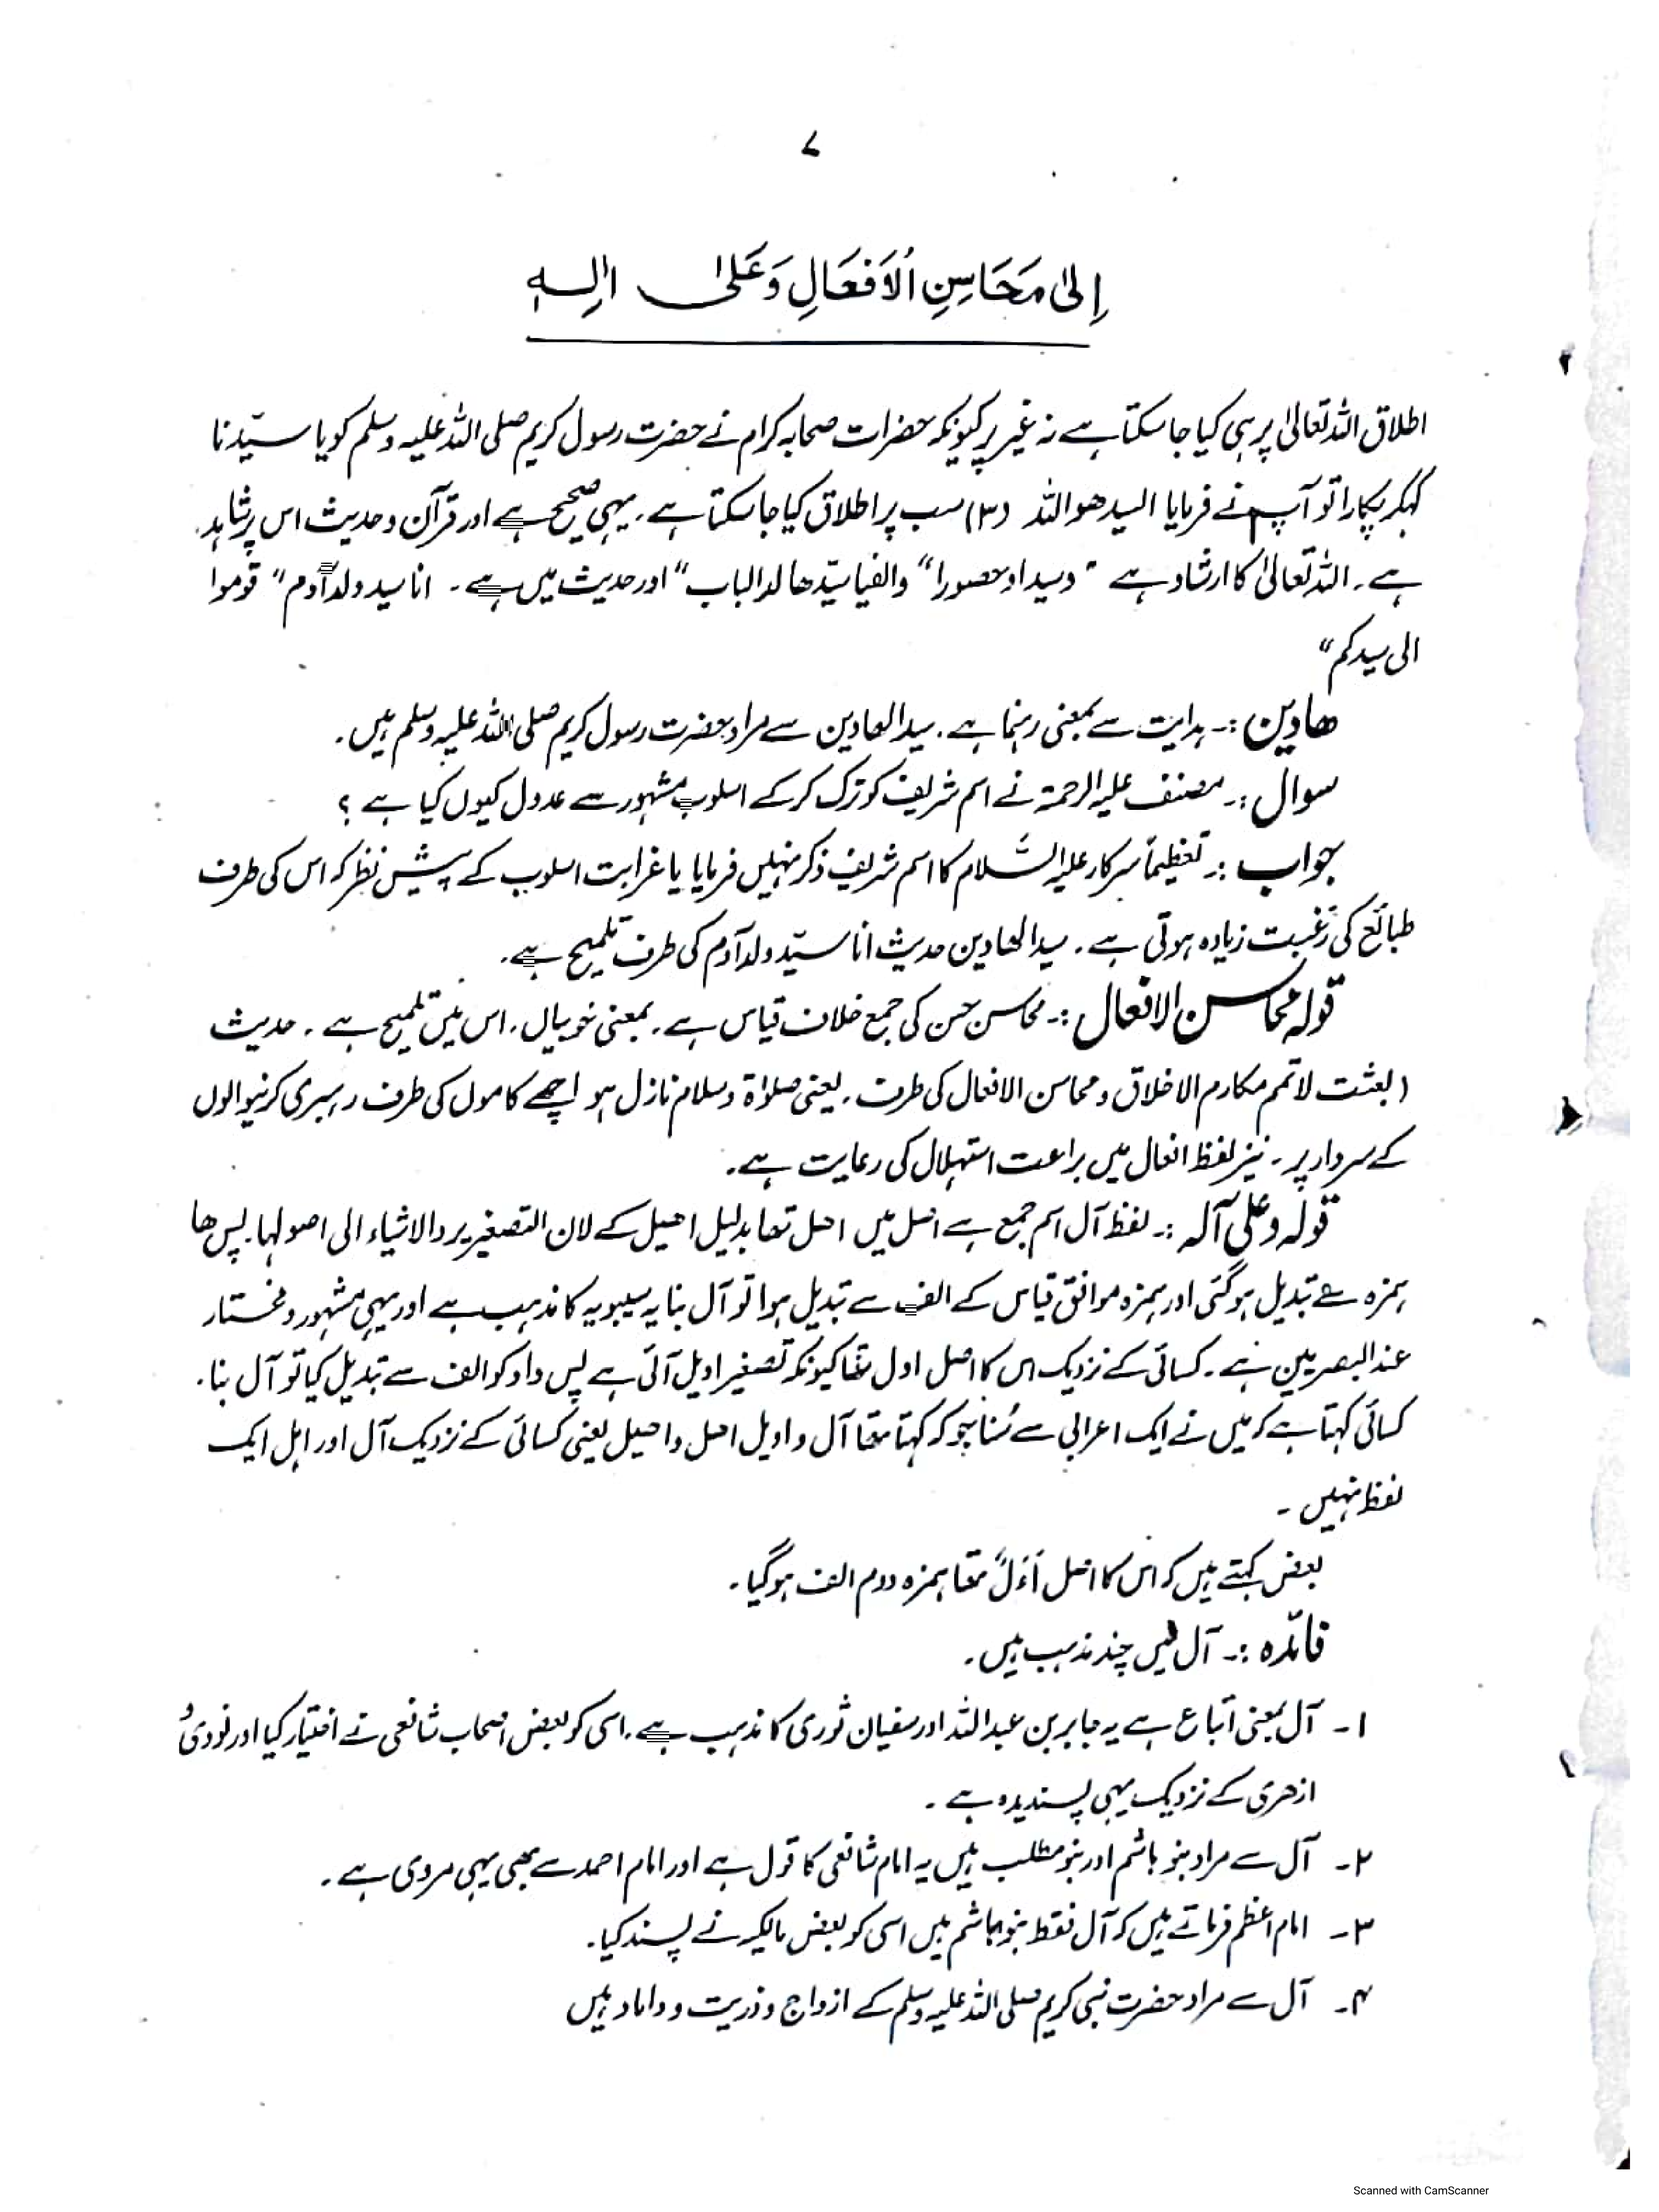 ۷
اِلیٰ مَحَاسِنِ الْاَفْعَالِ وَعَلیٰ اٰلِہٖ
اطلاق اللہ تعالیٰ پر ہی کیا جا سکتا ہے نہ غیر پر کیونکہ حضرات صحابہ کرام نے حضرت رسول کریم صلی اللہ علیہ وسلم کو یا سیّدنا
کہکر پکارا تو آپ نے فرمایا السید ھو اللہ (۳) سب پر اطلاق کیا جا سکتا ہے۔ یہی صحیح ہے اور قرآن و حدیث اس پر شاہد
ہے۔ اللہ تعالیٰ کا ارشاد ہے "وسیدا وحصورا" والفیا سیّدھا لدالباب" اور حدیث میں ہے۔ انا سید ولد آدم" قوموا
الی سیدکم"
ھادین :۔ ہدایت سے بمعنی رہنما ہے۔ سید الھادین سے مراد حضرت رسول کریم صلی اللہ علیہ وسلم ہیں۔
سوال :۔ مصنف علیہ الرحمۃ نے اسم شریف کو ترک کر کے اسلوب مشہور سے عدول کیوں کیا ہے ؟
جواب :۔ تعظیماً سرکار علیہ السَّلام کا اسم شریف ذکر نہیں فرمایا یا غرابت اسلوب کے پیش نظر کہ اس کی طرف
طبائع کی رغبت زیادہ ہوتی ہے۔ سید الھادین حدیث انا سیّد ولد آدم کی طرف تلمیح ہے۔
قولہ محاسن الافعال :۔ محاسن حسن کی جمع خلاف قیاس ہے۔ بمعنی خوبیاں۔ اس میں تلمیح ہے۔ حدیث
(بعثت لاتمم مکارم الاخلاق و محاسن الافعال کی طرف۔ یعنی صلوٰۃ و سلام نازل ہو اچھے کاموں کی طرف رہبری کرنیوالوں
کے سردار پر۔ نیز لفظ افعال میں براعت استہلال کی رعایت ہے۔
قولہ وعلی آلہ :۔ لفظ آل اسم جمع ہے اصل میں اھل تھا بدلیل اھیل کے لان التصغیر یرد الاشیاء الی اصولہا۔ پس ھا
ہمزہ سے تبدیل ہو گئی اور ہمزہ موافق قیاس کے الف سے تبدیل ہوا تو آل بنا یہ سیبویہ کا مذہب ہے اور یہی مشہور و مختار
عند البصریین ہے۔ کسائی کے نزدیک اس کا اصل اول تھا کیونکہ تصغیر اویل آئی ہے پس واو کو الف سے تبدیل کیا تو آل بنا۔
کسائی کہتا ہے کہ میں نے ایک اعرابی سے سُنا جو کہ کہتا تھا آل و اویل اھل و اھیل یعنی کسائی کے نزدیک آل اور اہل ایک
لفظ نہیں۔
بعض کہتے ہیں کہ اس کا اصل أَءَلٌ تھا ہمزہ دوم الف ہو گیا۔
فائدہ :۔ آل میں چند مذہب ہیں۔
۱۔ آل بمعنی اتباع ہے یہ جابر بن عبد اللہ اور سفیان ثوری کا مذہب ہے۔ اسی کو بعض اصحاب شافعی نے اختیار کیا اور نووی و
ازھری کے نزدیک یہی پسندیدہ ہے۔
۲۔ آل سے مراد بنو ہاشم اور بنو مطلب ہیں یہ امام شافعی کا قول ہے اور امام احمد سے بھی یہی مروی ہے۔
۳۔ امام اعظم فرماتے ہیں کہ آل فقط بنو ہاشم ہیں اسی کو بعض مالکیہ نے پسند کیا۔
۴۔ آل سے مراد حضرت نبی کریم صلی اللہ علیہ وسلم کے ازواج و ذریت و داماد ہیں
Scanned with CamScanner